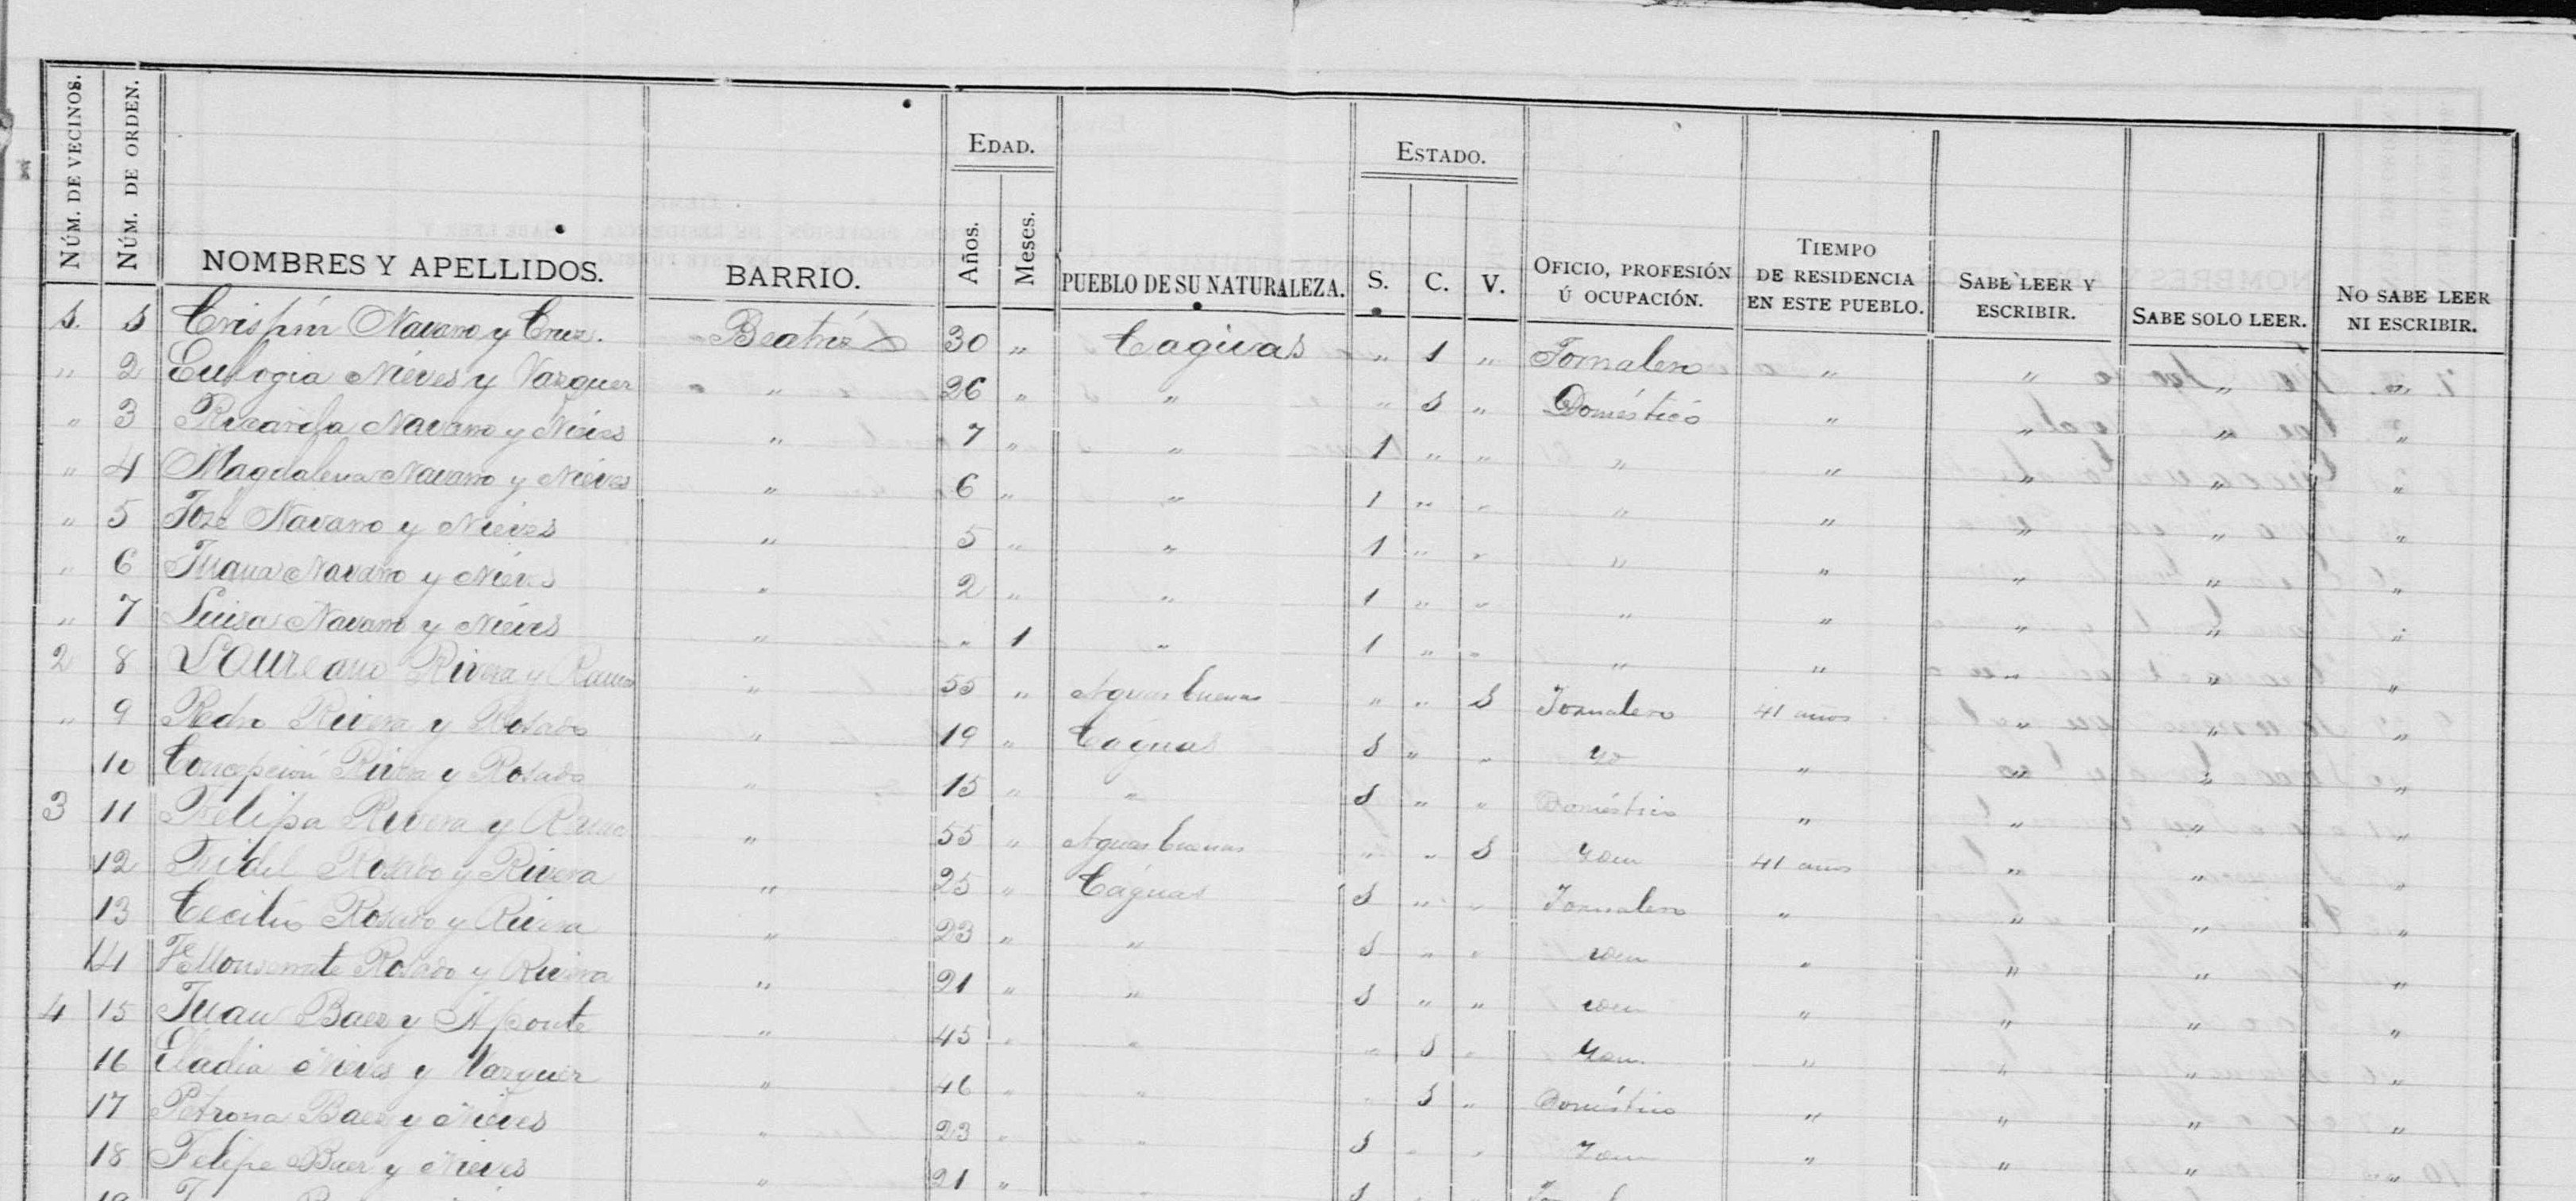 NÚM. DE VECINOS. NÚM. DE ORDEN. NOMBRES Y APELLIDOS. BARRIO. EDAD. Años. Meses. PUEBLO DE SU NATURALEZA. ESTADO. S. C. V. OFICIO, PROFESIÓN Ú OCUPACIÓN. TIEMPO DE RESIDENCIA EN ESTE PUEBLO. SABE LEER Y ESCRIBIR. SABE SOLO LEER. NO SABE LEER NI ESCRIBIR.
1. 1 Crispín Navarro y Cruz. Beatriz 30 " Caguas " 1 " Jornalero " " " "
" 2 Eulogia Nieves y Vazquez " 26 " " " 1 " Doméstico " " " "
" 3 Ricarda Navarro y Nieves " 7 " " 1 " " " " " " "
" 4 Magdalena Navarro y Nieves " 6 " " 1 " " " " " " "
" 5 José Navarro y Nieves " 5 " " 1 " " " " " " "
" 6 Juana Navarro y Nieves " 2 " " 1 " " " " " " "
" 7 Luisa Navarro y Nieves " " 1 " 1 " " " " " " "
2 8 Laureano Rivera y Ramos " 55 " Aguas buenas " " 1 Jornalero 41 años " " "
" 9 Pedro Rivera y Rosado " 19 " Caguas 1 " " " " " "
10 Concepción Rivera y Rosado " 15 " " 1 " " Doméstico " " " "
3 11 Felipa Rivera y " 55 " Aguas buenas " " 1 Ydem 41 años " " "
12 Fidel Rosado y Rivera " 25 " Caguas 1 " " Jornalero " " " "
13 Cecilio Rosado y Rivera " 23 " " 1 " " idem " " " "
14 Monserrate Rosado y Rivera " 21 " " 1 " " idem " " " "
4 15 Juan Baez y Aponte " 45 " " " 1 " Ydem. " " " "
16 Eladia Nieves y Vazquez " 46 " " " 1 " Doméstico " " " "
17 Petrona Baez y Nieves " 23 " " 1 " " Ydem " " " "
18 Felipe Baez y Nieves " 21 " " 1 " "